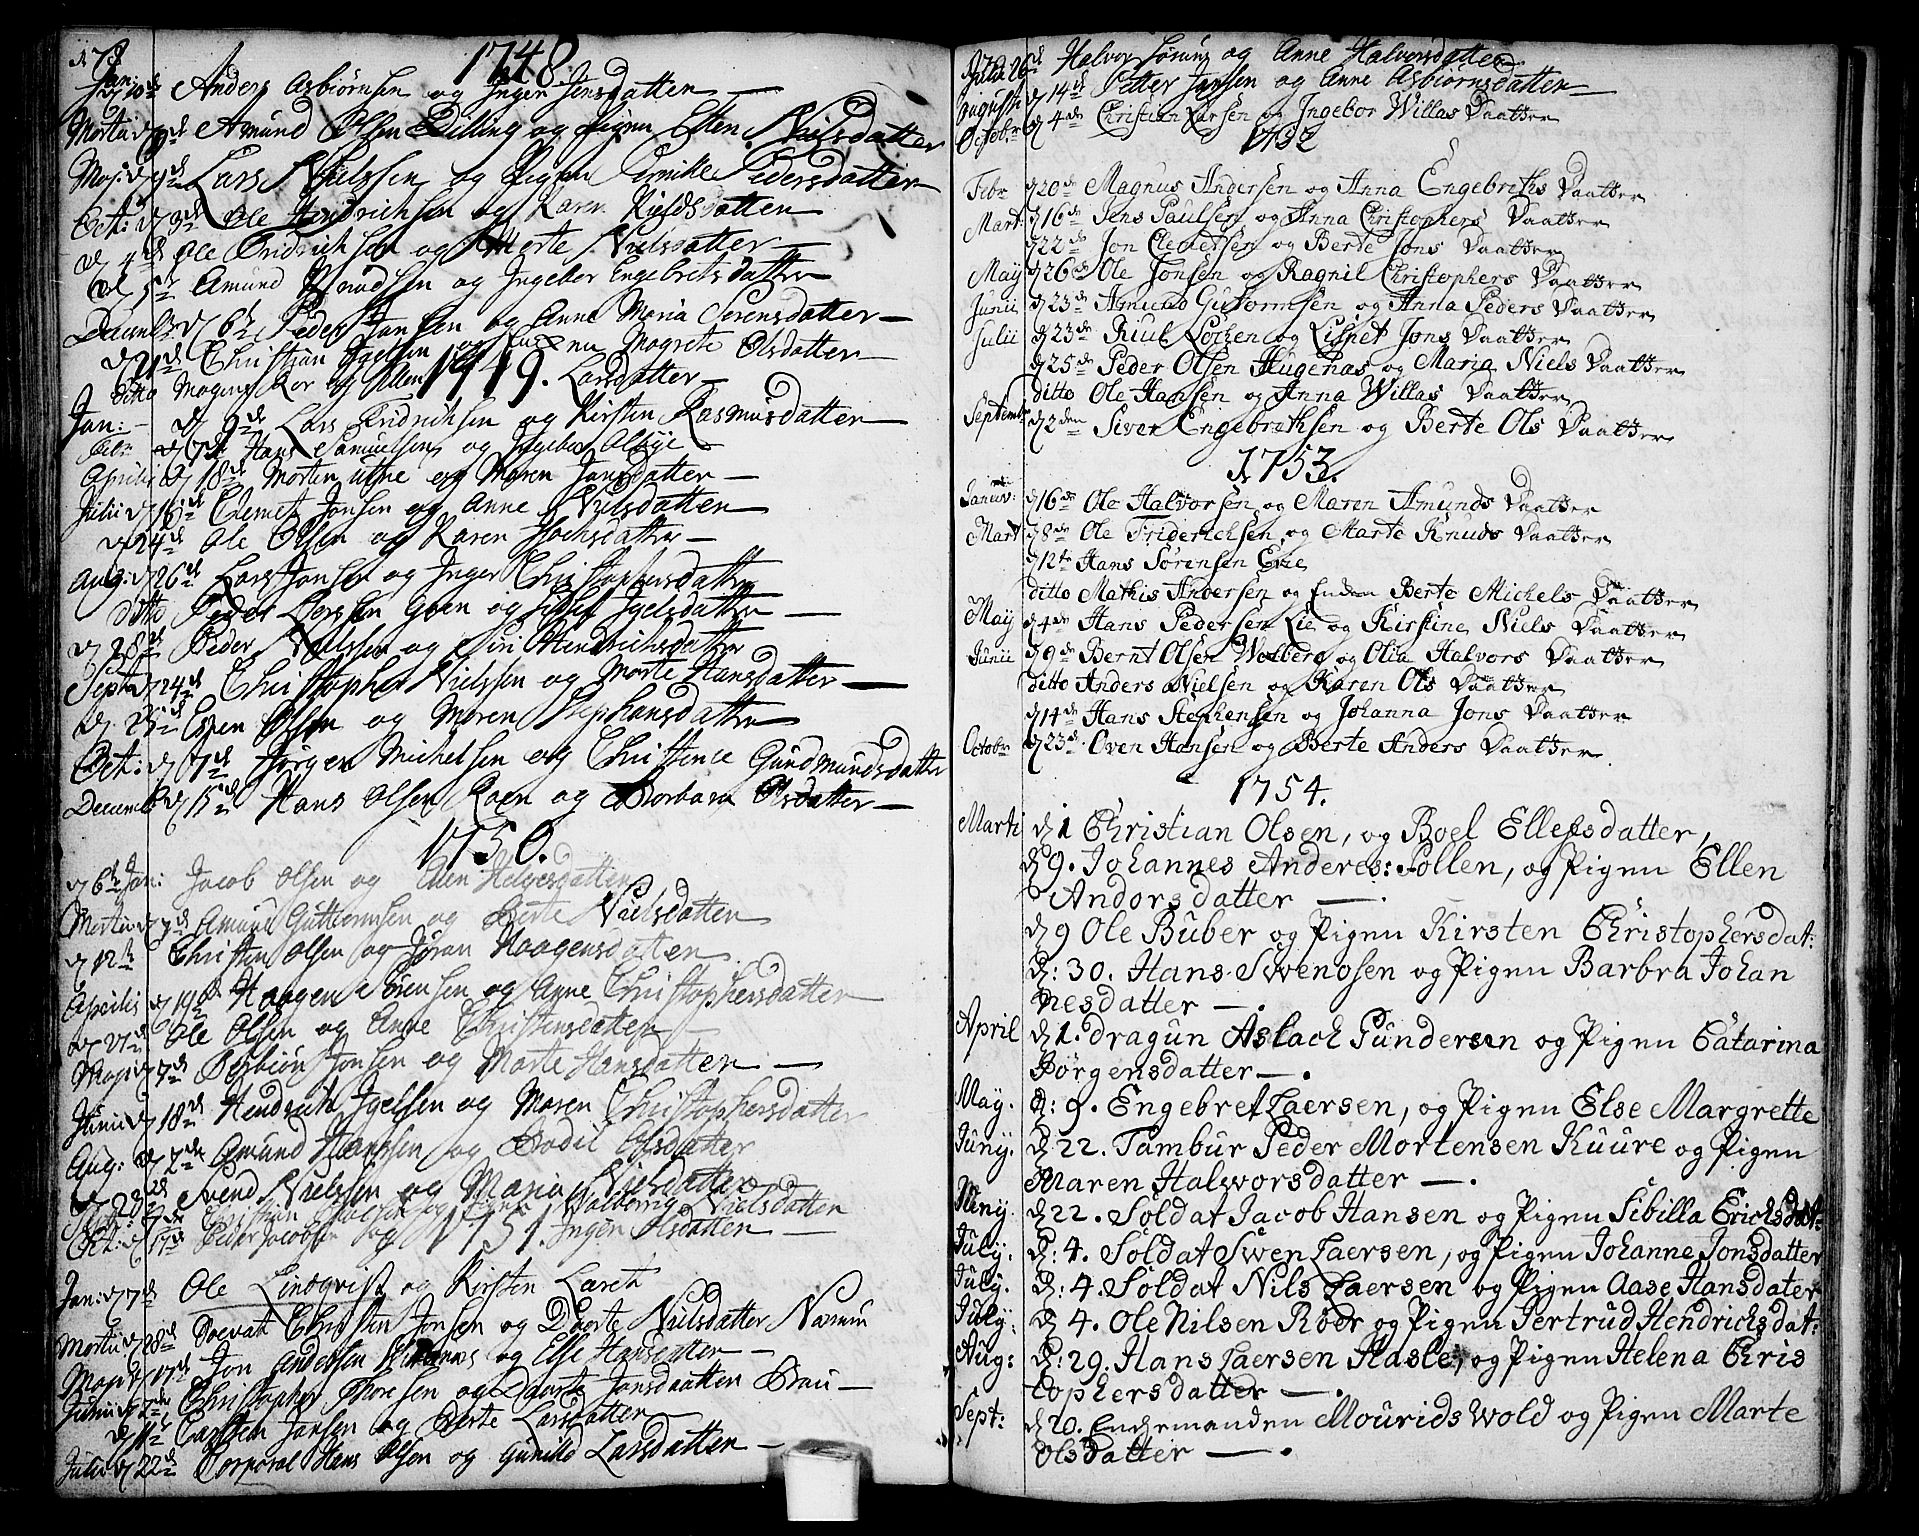 1748.
Jan: d 10de Anders Asbiørnsen og Inger Jensdatter —
Martii d 3de Amund Olsen Dilling og Pigen Ellen Nielsdatter
Maji d 9de Lars Nielssen og Pigen Pernike Pedersdatter
Oct: d 3de Ole Hendrichsen og Karen
d 4de Ole Fridrichsen og Marte Nielsdatter —
d 5te Amund Knudsen og Ingebor Engebretsdatter
Decembr d 6te Peder Jansen og Anne Maria Sørensdatter —
d 21de Christian Igelsen og Magrete Olsdatter —
ditto Mogens Roer og Ellen Larsdatter —
1749.
Jan: d 9de Lars Fridrichsen og Kirsten Rasmusdatter
Febr d 7de Hans Samuelsen og Ingebor Olssøe
Aprilis d 18de Morten Uthne og Maren Jansdatter —
Julii d 16de Clemet Jonsen og Anne Nielsdatter
d 24de Ole Olsen og Karen Jochsdatter —
Aug: d 26de Lars Jonsen og Inger Christophersdatter
ditto Peder Larssen Goen og Sidsel Igelsdatter —
d 28de Peder Nielssen og Siri Hendrichsdatter
Septr d 24de Christopher Nielssen og Marte Hansdatter —
d. 25de Espen Olsen og Maren Stephansdatter
Oct: d 7de Jørgen Michelsen og Christence Gundmundsdatter
Decembr d 15de Hans Olsen Roen og Barbara Olsdatter —
1750.
d 6te Jan: Jacob Olsen og Ellen Helgesdatter
Martii d 7de Amund Guttormsen og Berte Nielsdatter
d 12te Christen Olsen og Jøran Haagensdatter
Aprilis d 19de Haagen Sørensen og Anne Christophersdatter
d 27de Ole Olsen og Anne Christensdatter —
Maji d 7de Torbiørn Jonsen og Marte Hansdatter —
Junii d 18de Hendrich Igelsen og Maren Christophersdatter
Aug: d 2de Amund Hanssen og Bodil Olsdatter
d 23de Svend Nielssen og Maria Nielsdatter
Septr: d Christian og Walborg Nielsdatter
Oct: d 17de Peder Jacobsen og Inger Olsdatter —
1751.
Jan: d 7de Ole Lindqvist og Kirsten Lareth
Martii d 28de Soldat Christen Jonsen og Dorte Nielsdatter
Maji d 17de Jon Andersen og Else Hansdatter —
Junii d 2de Christopher Thoresen og Dorte Jonsdaatter —
d 11te Carsten Jansen og Berte Larsdatter
Julii d 22de Corporal Hans Olsen og Gunild Larsdatter —
Julii 26de Halvor og Anne Halvorsdatter
Augusti d 14de Petter Jansen og Anne Asbiørnsdatter —
Octobr: d 4de Christian Larsen og Ingebor Willas Daatter
1752
Febr d 20de Magnus Andersen og Anna Engebreths Daatter
Mart d 16de Jens Paulsen og Anna Christophers Daatter
d 22de Jon Clemetsen og Berte Jons Daatter
Maÿ d 26de Ole Jonsen og Ragnil Christophers Daatter
Junii d 23de Amund Gutormsen og Anna Peders Daatter
Julii d 23de Riul Lorzen og Lisbet Jons Daatter
d 25de Peder Olsen Hugenas og Maria Niels Daatter
ditto Ole Hansen og Anna Willas Daatter
Septembr d 2den Siver Engebrethsen og Berte Ols Daatter
1753.
Januv: d 16de Ole Halvorsen og Maren Amunds Daatter
Mart d 8de Ole Friderichsen og Marte Knuds Daatter
d 12te Hans Sørensen Erie
ditto Mathis Andersen og Enken Berte Michels Daatter
Maÿ d 4de Hans Pedersen Lie og Kirstine Niels Daatter
Junii d 9de Bernt Olsen Wolberg og Olia Halvors Daatter
ditto Anders Nielsen og Karen Ols Daatter
d 14de Hans Stephensen og Johanna Jons Daatter
Octobr d 23de Oven Hansen og Berte Anders Daatter
1754.
Marti d 1 Christian Olsen, og Boel Ellefsdatter,
d 9. Johannes Anders: Sollen, og Pigen Ellen
Andorsdatter —.
d 9 Ole Buber og Pigen Kirsten Christophersdat:
d: 30. Hans Swendsen og Pigen Barbra Johan
nesdatter —.
April d 1. dragun Aslach Gundersen og Pigen Catarina
Børgensdatter —.
May. d: 9. Engebret Laersen, og Pigen Else Margrette
Juny. d 22. Tambur Peder Mortensen Kuure og Pigen
Maren Halsvorsdatter —.
Meny. d 22. Soldat Jacob Hansen og Pigen Sibilla Erichsdat:
July. d: 4. Soldat Swen Laersen, og Pigen Johanne Jonsdatter
July. d: 4. Soldat Nils Laersen og Pigen Aase Hansdater
July: d 4. Ole Nilsen Roer og Pigen Jertrud Hendrichsdat:
Aug: d: 29. Hans Laersen Hasle, og Pigen Helena Chris
tophersdatter —.
Sept: d 20. Enchemanden Mourids Wold og Pigen Marte
Olsdatter —.